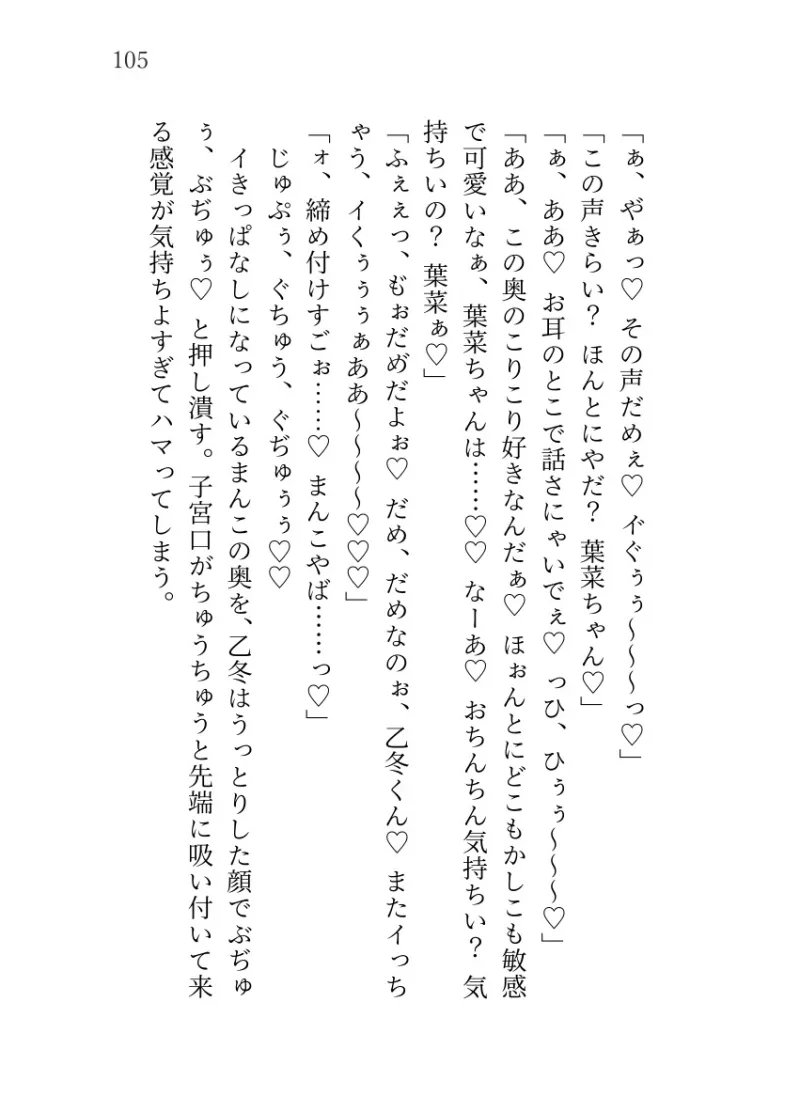 105
「ぁ、や゙ぁっ♡ その声だめぇ♡ イ゙ぐぅぅ～～～っ♡」
「この声きらい？ ほんとにやだ？ 葉菜ちゃん♡」
「ぁ、ああ♡ お耳のとこで話さにゃいでぇ♡ っひ、ひぅぅ～～～♡」
「ああ、この奥のこりこり好きなんだぁ♡ ほぉんとにどこもかしこも敏感
で可愛いなぁ、葉菜ちゃんは……♡♡ なーあ♡ おちんちん気持ちい？ 気
持ちいの？ 葉菜ぁ♡」
「ふぇぇっ、も゙ぉだめ゙だよぉ♡ だめ、だめなのぉ、乙冬くん♡ またイっち
ゃう、イくぅぅぅぁああ～～～～♡♡♡」
「ォ、締め付けすごぉ……♡ まんこやば……っ♡」
じゅぷぅ、ぐちゅう、ぐぢゅぅぅ♡♡
イきっぱなしになっているまんこの奥を、乙冬はうっとりした顔でぶぢゅ
ぅ、ぶぢゅぅ♡ と押し潰す。子宮口がちゅうちゅうと先端に吸い付いて来
る感覚が気持ちよすぎてハマってしまう。